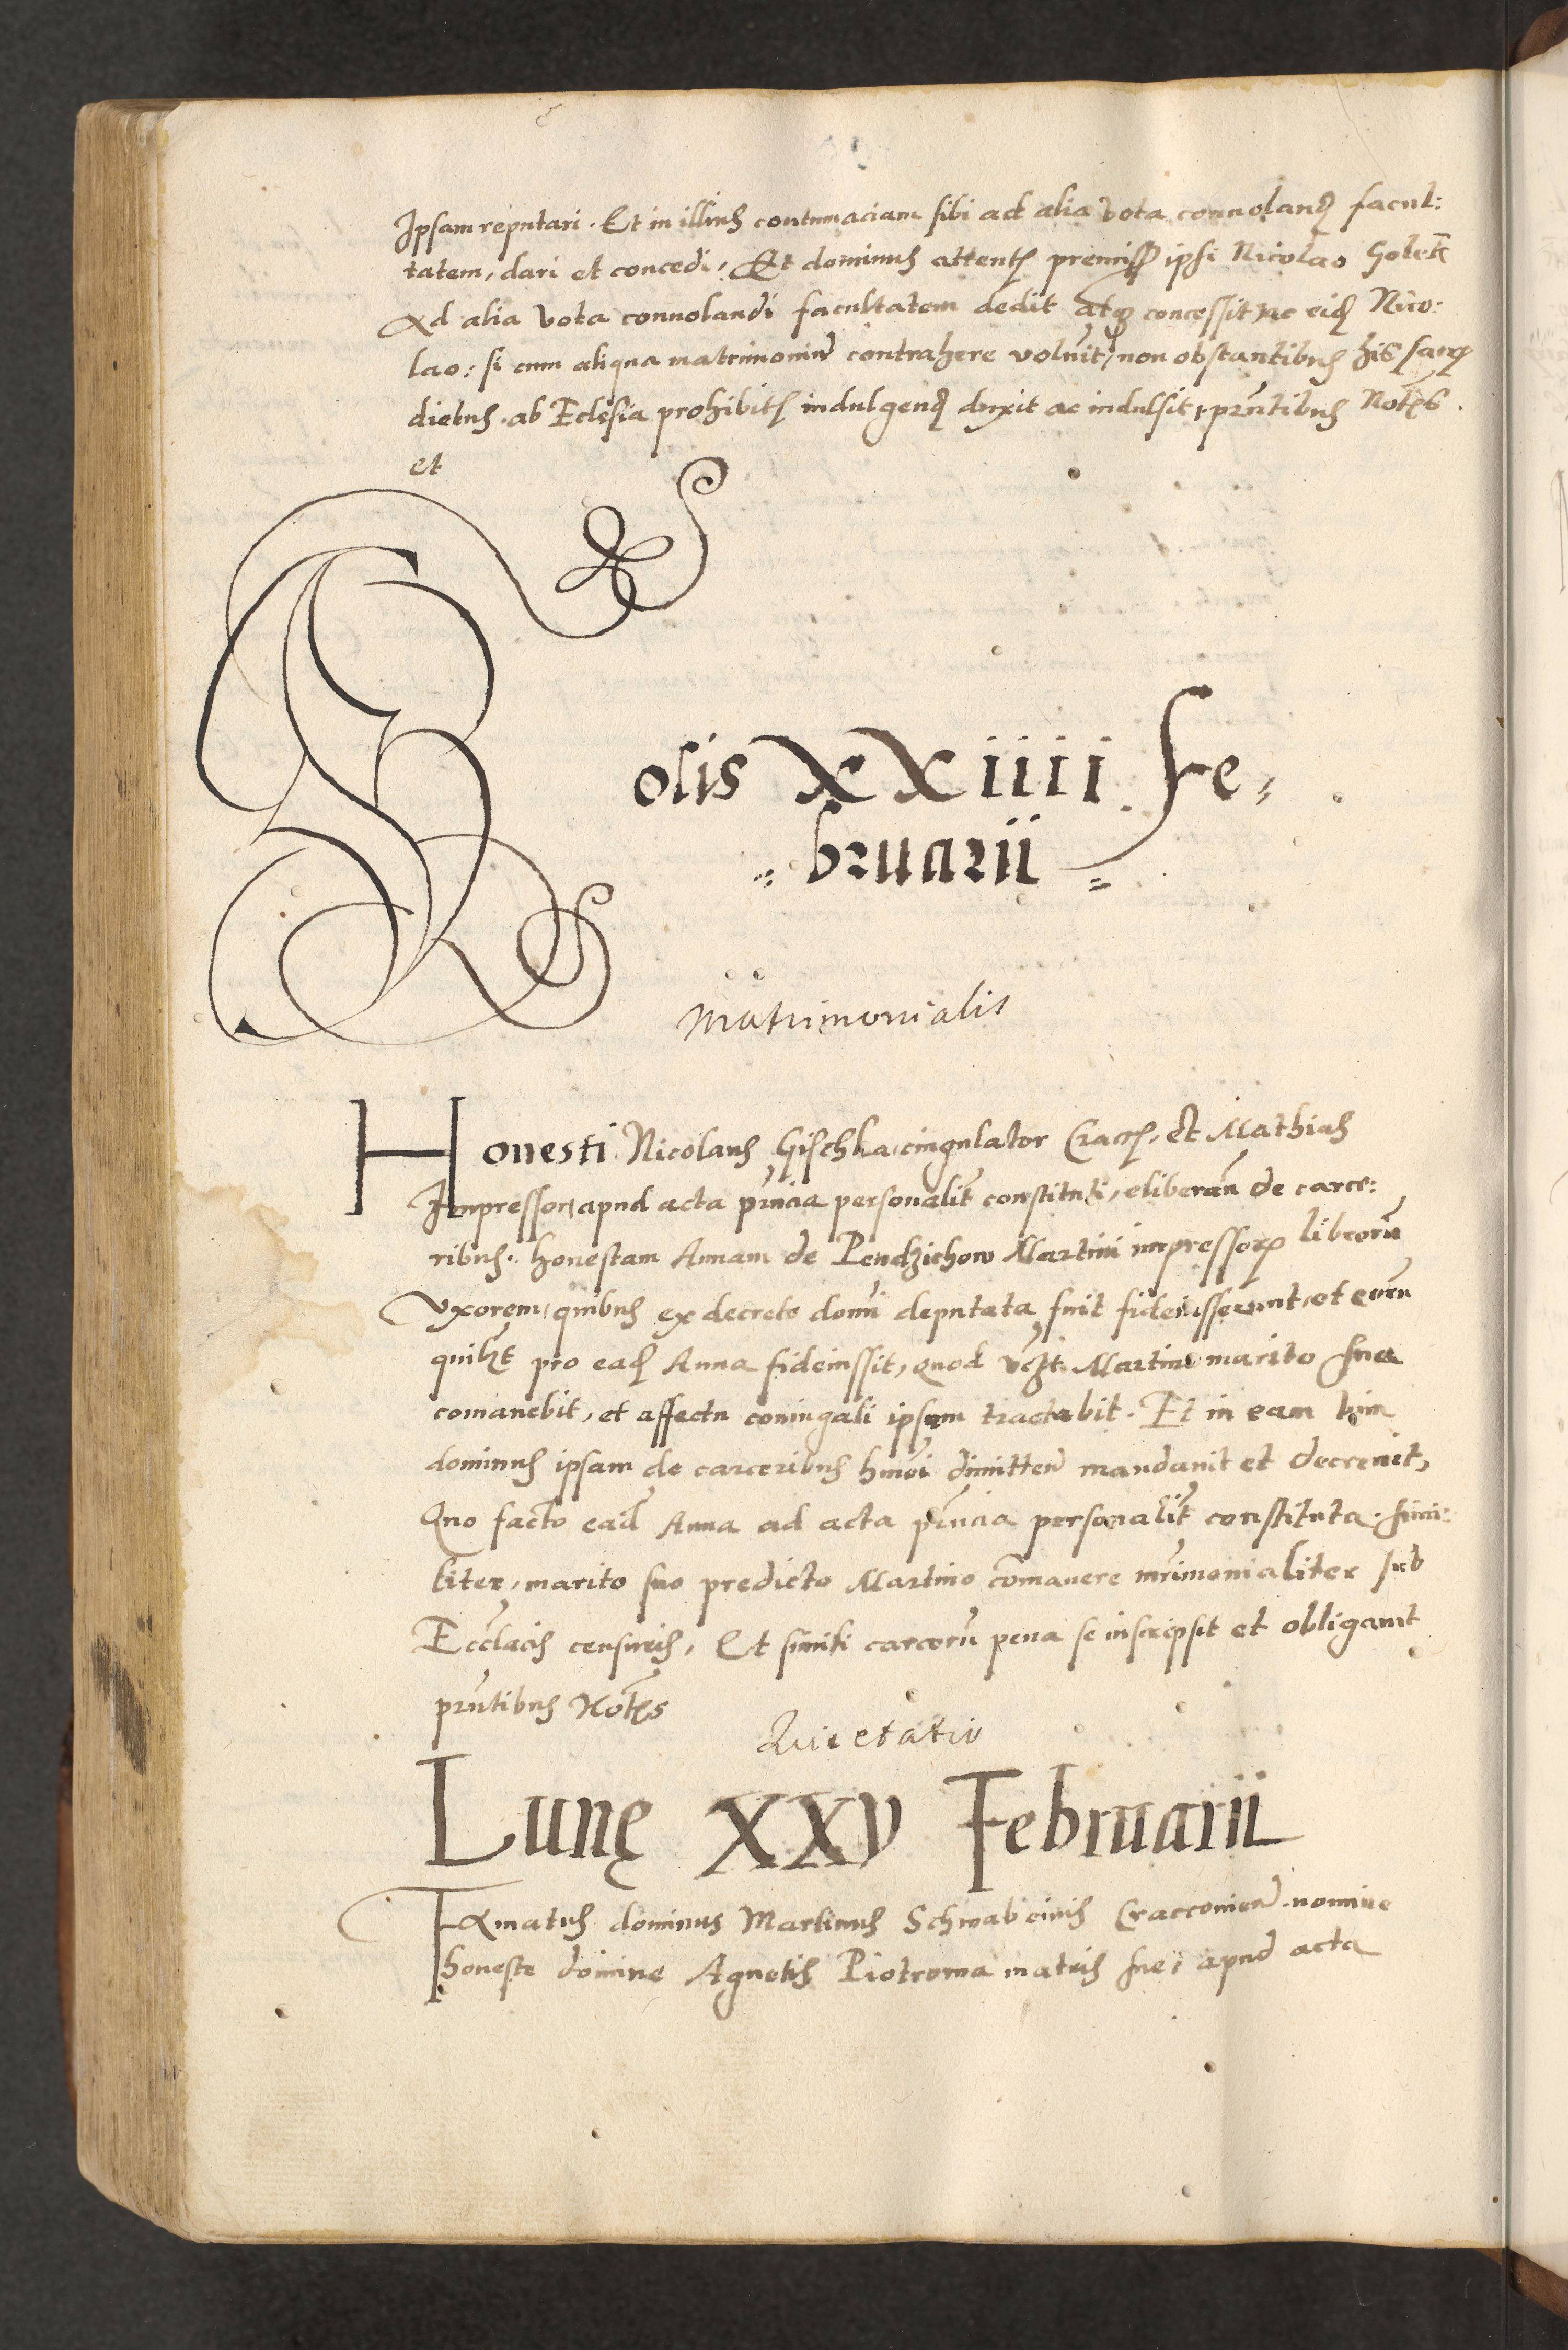 Ipsam reputari. Et in illius contumaciam sibi ad alia vota convoland facul:
tatem, dari et concedi, Et dominus attentis premissis ipsi Nicolao
Ad alia vota convolandi facultatem dedit atq concessit, ac eid Nico:
lao: si cum aliqua matrimoniu contrahere voluit, non obstantibus his sacris
diebus. ab Eclesia prohibitis indulgend duxit ac indulsit, pntibus Notis.
et
Solis XXiiii Fe,
bruarii
Matrimonialis
Honesti Nicolaus Gischka, cingulator Crac, et Mathias
Impressor, apud acta pncia personalit constituti, eliberan de carce:
ribus. honestam Annam de Pendzichow Martini impressoris librorum
Uxorem, quibus ex decreto domi deputata fuit fideiusserunt, et eorum
quilbt pro ead Anna fideiussit, quod Martino marito suo
comanebit, et affectu coniugali ipsum tractabit. Et in eam vim
dominus ipsam de carceribus hmoi dimitten mandavit et decrevit,
Quo facto ead Anna ad acta pncia personalit constituta. simi:
liter, marito suo predicto Martino comanere mrimonialiter sub
Ecclacis censuris, Et simili carcerum pena se inscripsit et obligavit
pntibus Notis
Quietatio
Lunę XXV Februarii
Famatus dominus Martinus Schwab civis Cracovien. nomine
honeste domine Agnetis Piotrowa matris sue, apud acta